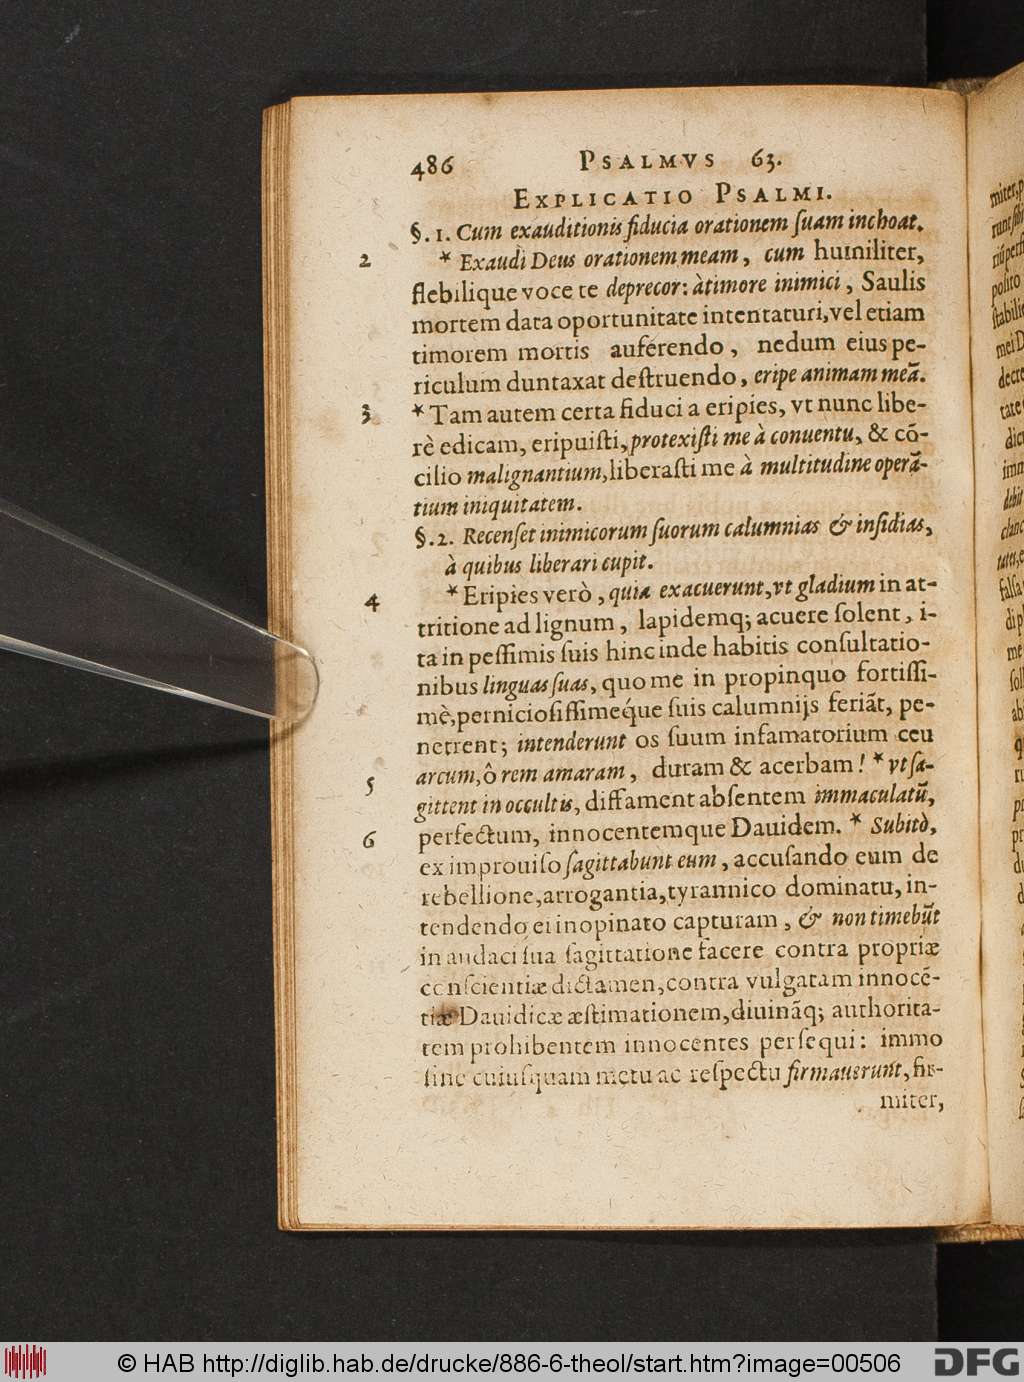 486 PSALMVS 63.
EXPLICATIO PSALMI.
§.1. Cum exauditionis fiducia orationem ſuam inchoat.
2 * Exaudi Deus orationem meam, cum humiliter,
flebilique voce te deprecor: à timore inimici, Saulis
mortem data oportunitate intentaturi, vel etiam
timorem mortis auferendo, nedum eius pe-
riculum duntaxat deſtruendo, eripe animam meā.
3 * Tam autem certa fiduci a eripies, vt nunc libe-
rè edicam, eripuiſti, protexiſti me à conuentu, & cō-
cilio malignantium, liberaſti me à multitudine operā-
tium iniquitatem.
§.2. Recenſet inimicorum ſuorum calumnias & inſidias,
à quibus liberari cupit.
4 * Eripies verò, quia exacuerunt, vt gladium in at-
tritione ad lignum, lapidemq; acuere ſolent, i-
ta in peſſimis ſuis hinc inde habitis conſultatio-
nibus linguas ſuas, quo me in propinquo fortiſſi-
mè, pernicioſiſſimeq́ue ſuis calumnijs feriāt, pe-
netrent; intenderunt os ſuum infamatorium ceu
arcum, ô rem amaram, duram & acerbam! * vt ſa-
5 gittent in occultis, diffament abſentem immaculatū,
6 perfectum, innocentemque Dauidem. * Subitò,
ex improuiſo ſagittabunt eum, accuſando eum de
rebellione, arrogantia, tyrannico dominatu, in-
tendendo ei inopinato capturam, & non timebūt
in audaci ſua ſagittatione facere contra propriæ
conſcientiæ dictamen, contra vulgatam innocē-
tiæ Dauidicæ æſtimationem, diuināq; authorita-
tem prohibentem innocentes perſequi: immo
ſine cuiuſquam metu ac reſpectu firmauerunt, fir-
miter,
© HAB http://diglib.hab.de/drucke/886-6-theol/start.htm?image=00506
DFG